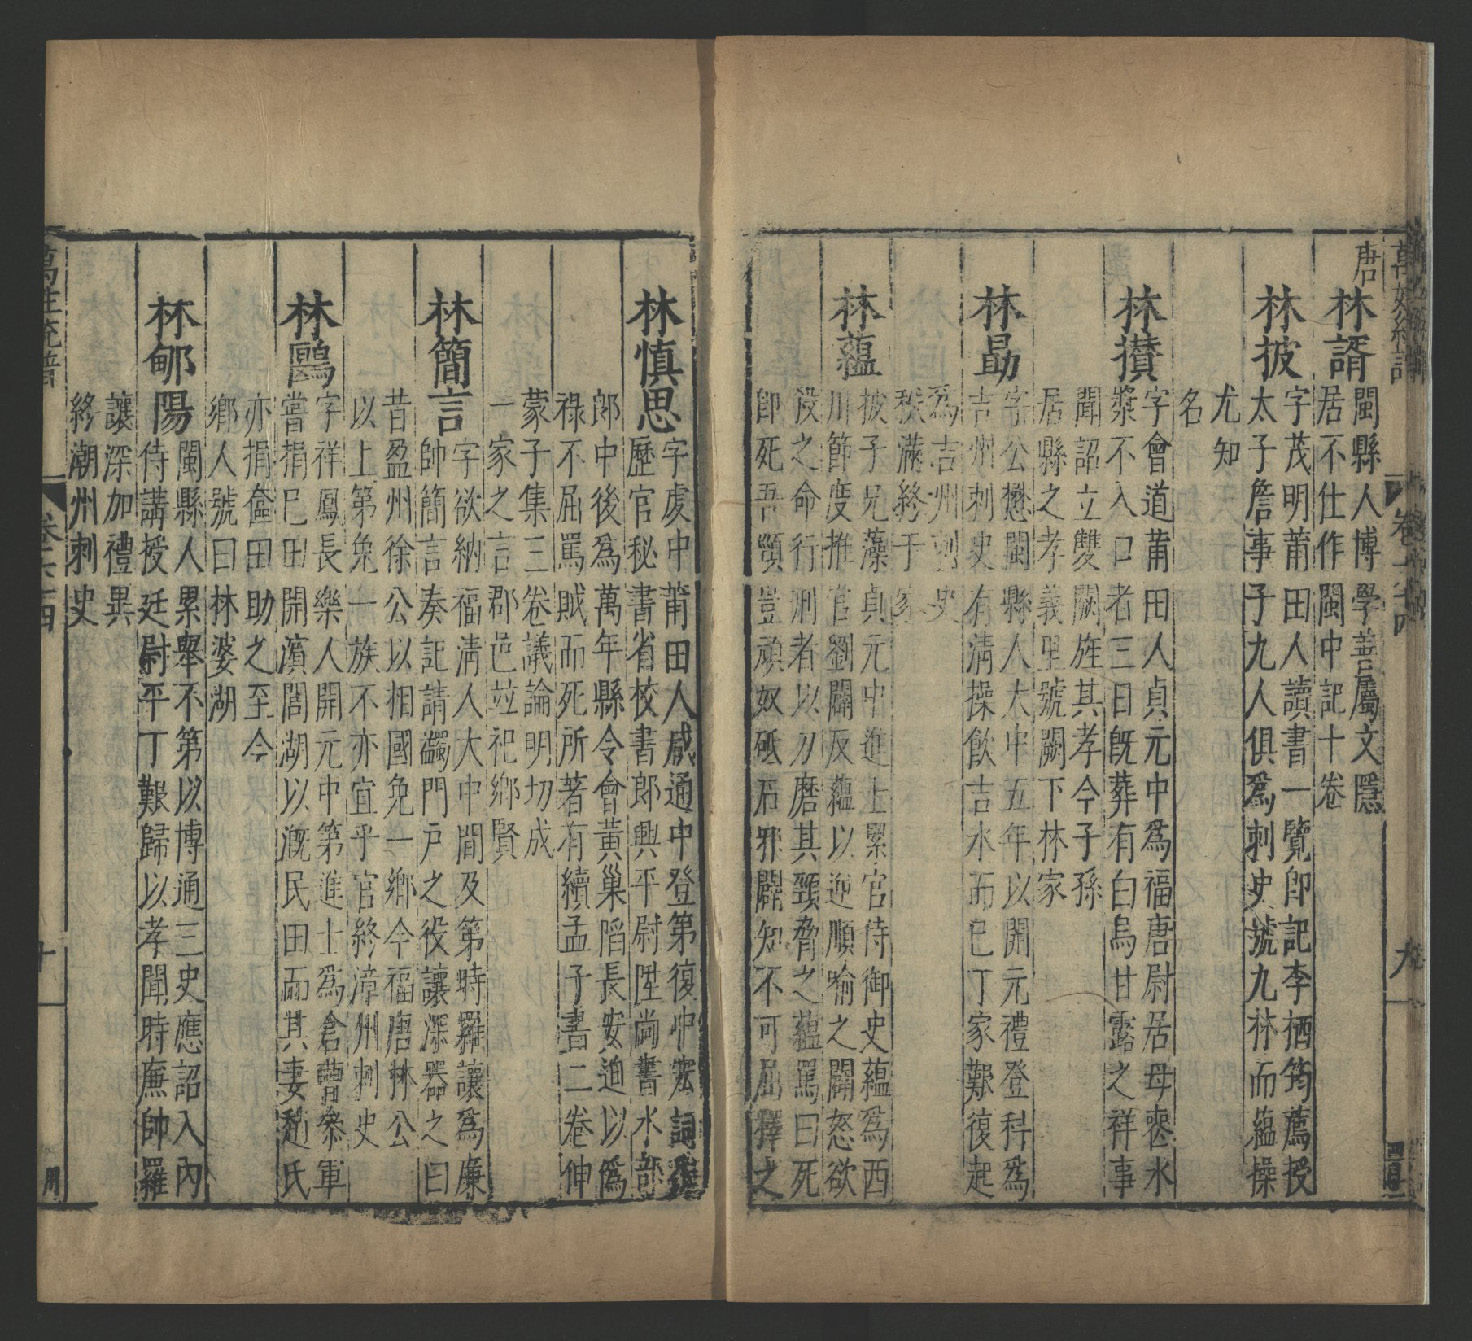 萬姓統譜
卷六十四
九
唐
林諝
閩縣人博學善屬文隱
居不仕作閩中記十卷
林披
字茂明莆田人讀書一覽即記李栖筠薦授
太子詹事子九人俱爲刺史號九林而蘊操
尤知
名
林攢
字會道莆田人貞元中爲福唐尉居母喪水
漿不入口者三日既葬有白烏甘露之祥事
聞詔立雙闕旌其孝今子孫
居縣之孝義里號闕下林家
林勗
字公懋閩縣人大中五年以開元禮登科爲
吉州刺史有清操飲吉水而已丁家艱復起
爲吉州刺史
秩滿終于家
林蘊
披子兄藻貞元中進士累官侍御史蘊爲西
川節度推官劉闢反蘊以逆順喻之闢怒欲
殺之命行刑者以刃磨其頸脅之蘊罵曰死
即死吾頸豈頑奴砥石邪闢知不可屈釋之
林慎思
字虔中莆田人咸通中登第復中宏詞
歷官秘書省校書郎興平尉陞尚書水部
郎中後爲萬年縣令會黃巢陷長安迫以僞
祿不屈罵賊而死所著有續孟子書二卷伸
蒙子集三卷議論明切成
一家之言郡邑竝祀鄉賢
林簡言
字欲納福清人大中間及第時羅讓爲廉
帥簡言奏記請蠲門戶之役讓深器之曰
昔盈州徐公以相國免一鄉今福唐林公
以上第免一族不亦宜乎官終漳州刺史
林鷃
字祥鳳長樂人開元中第進士爲倉曹參軍
嘗捐巳田開濵閭湖以漑民田而其妻趙氏
亦捐奩田助之至今
鄉人號曰林婆湖
林郇陽
閩縣人累舉不第以博通三史應詔入內
侍講授廷尉平丁艱歸以孝聞時廉帥羅
讓深加禮異
終潮州刺史
萬姓統譜
卷六十四
十
周